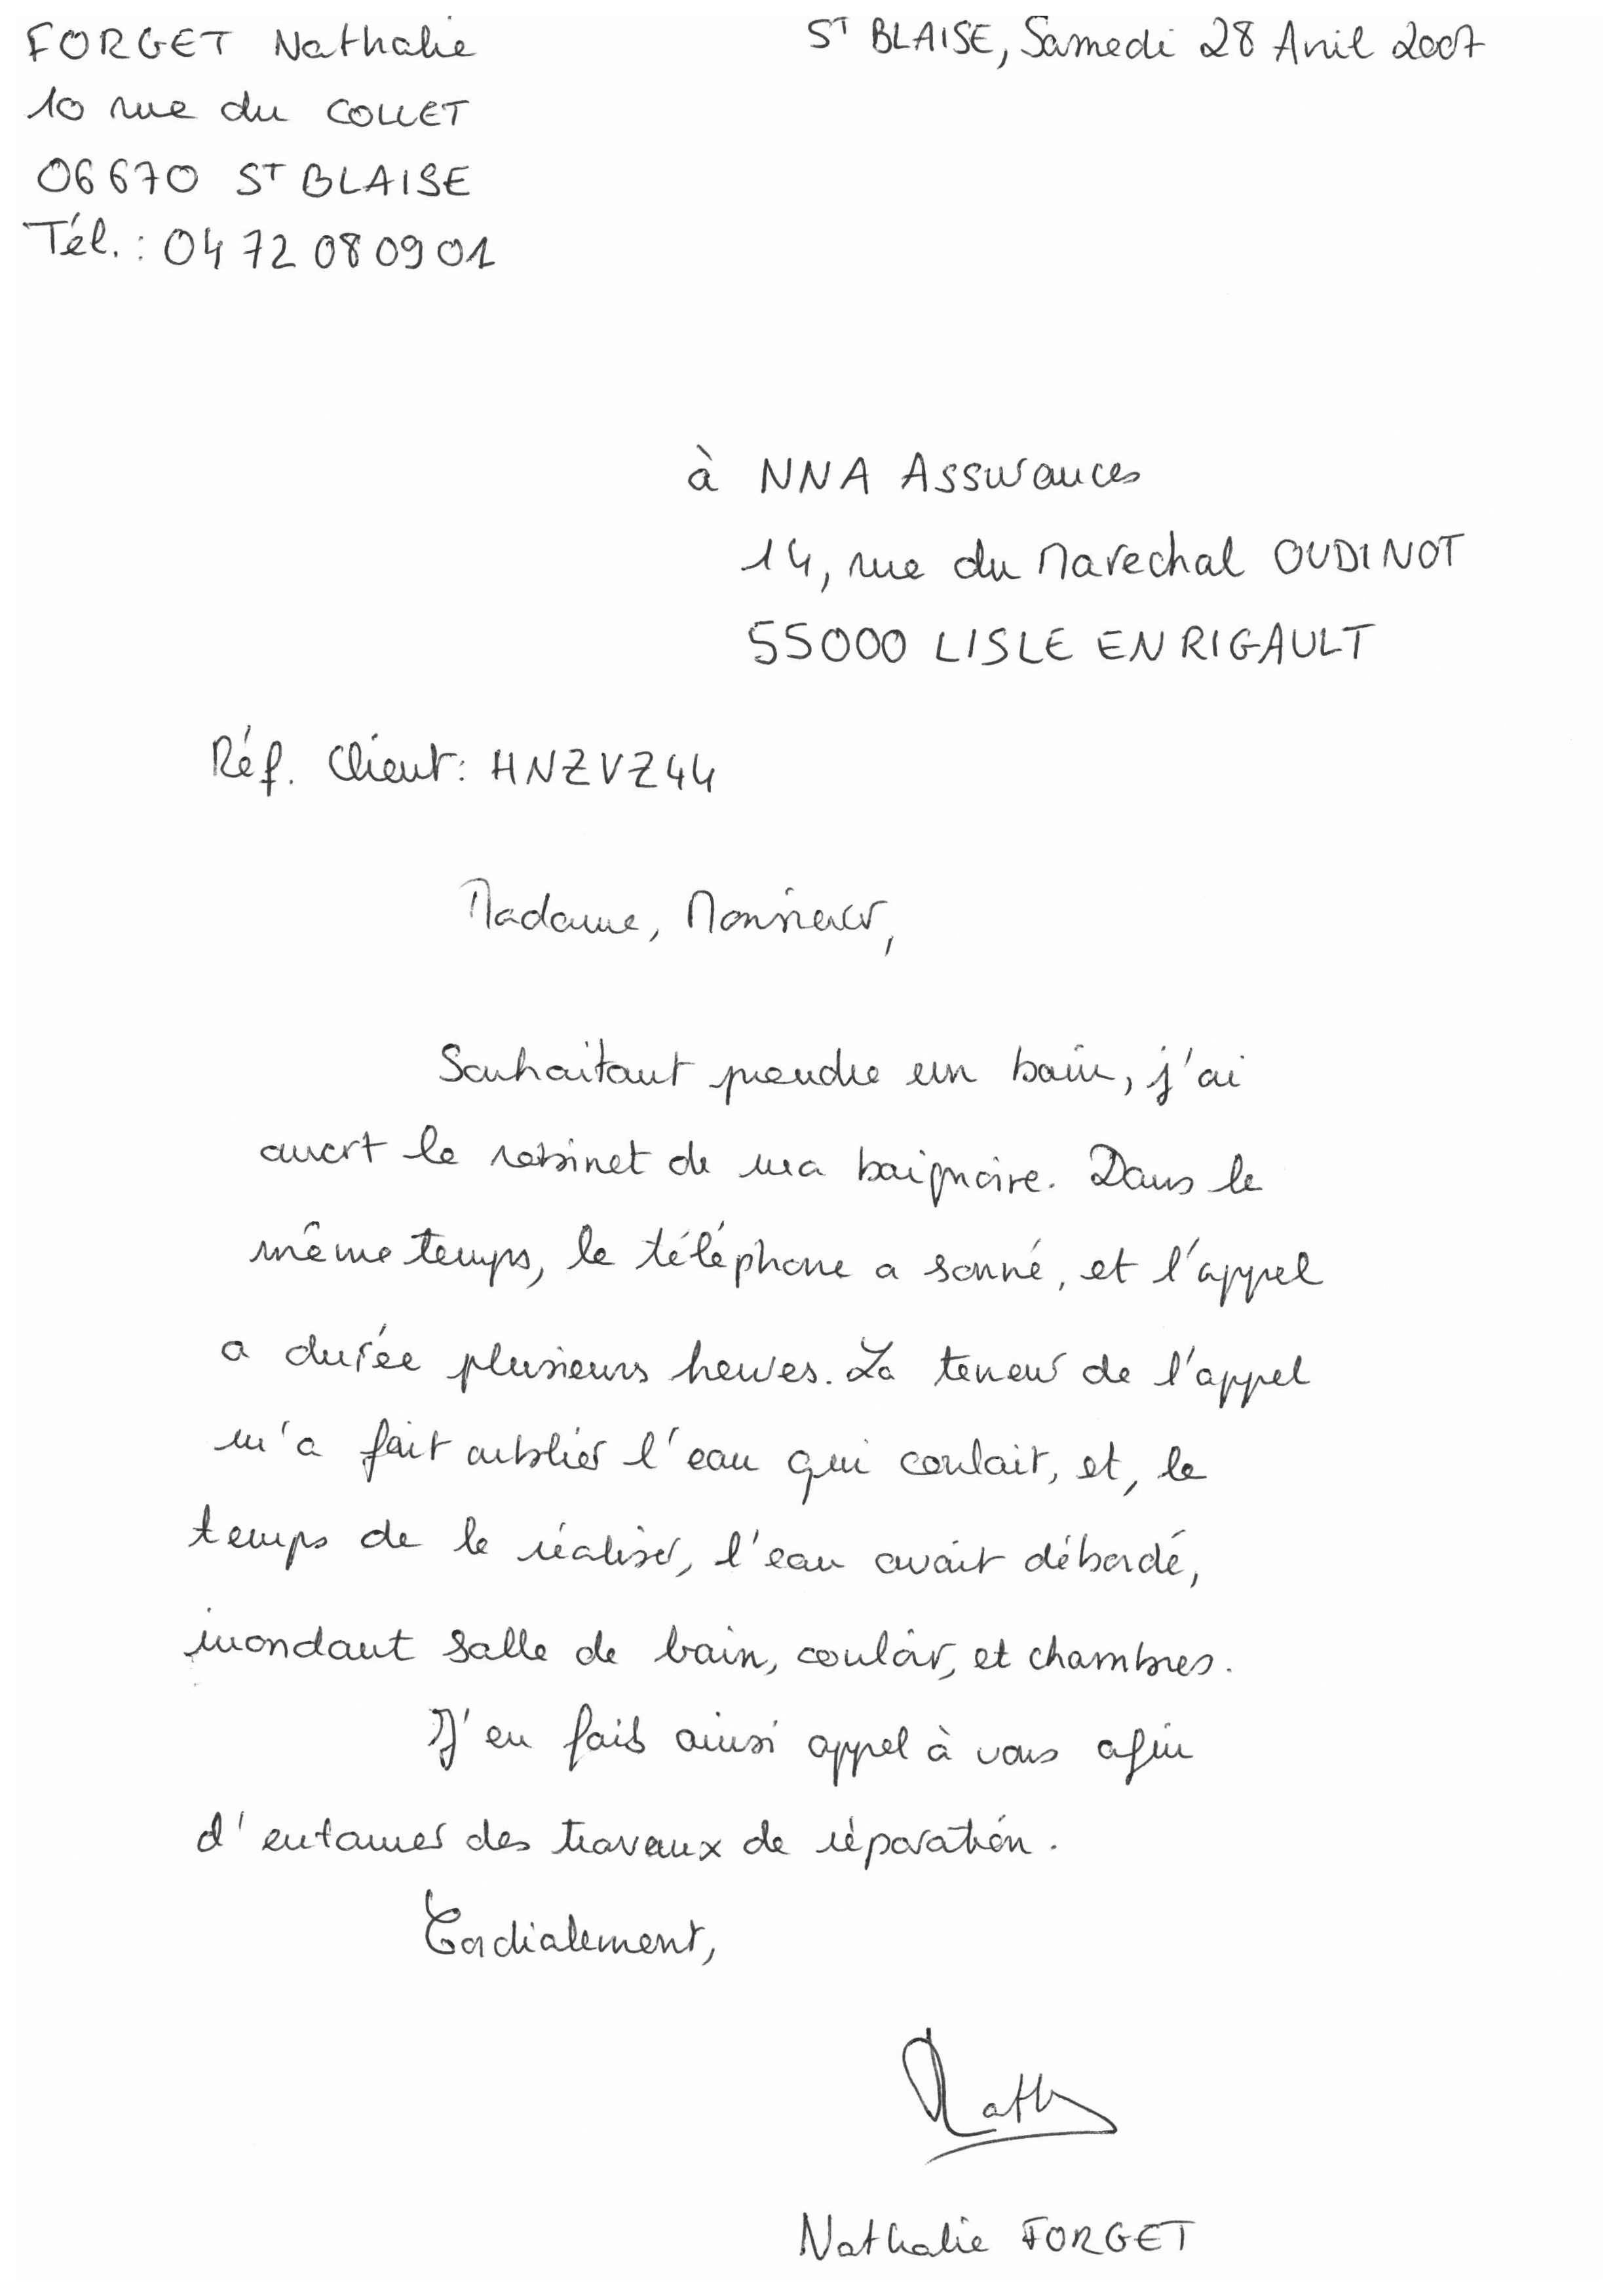 FORGET Nathalie
10 rue du COLLET
06670 ST BLAISE
Tél. : 04 72 08 09 01
ST BLAISE, Samedi 28 Avril 2007
à NNA Assurances
14, rue du Marechal OUDINOT
55000 LISLE EN RIGAULT
Réf. Client : HNZVZ44
Madame, Monsieur,
Souhaitant prendre un bain, j'ai
ouvert le robinet de ma baignoire. Dans le
même temps, le téléphone a sonné, et l'appel
a durée plusieurs heures. La teneur de l'appel
m'a fait oublier l'eau qui coulait, et, le
temps de le réaliser, l'eau avait débordé,
inondant salle de bain, couloir, et chambres.
J'en fais ainsi appel à vous afin
d'entamer des travaux de réparation.
Cordialement,
Nath
Nathalie FORGET